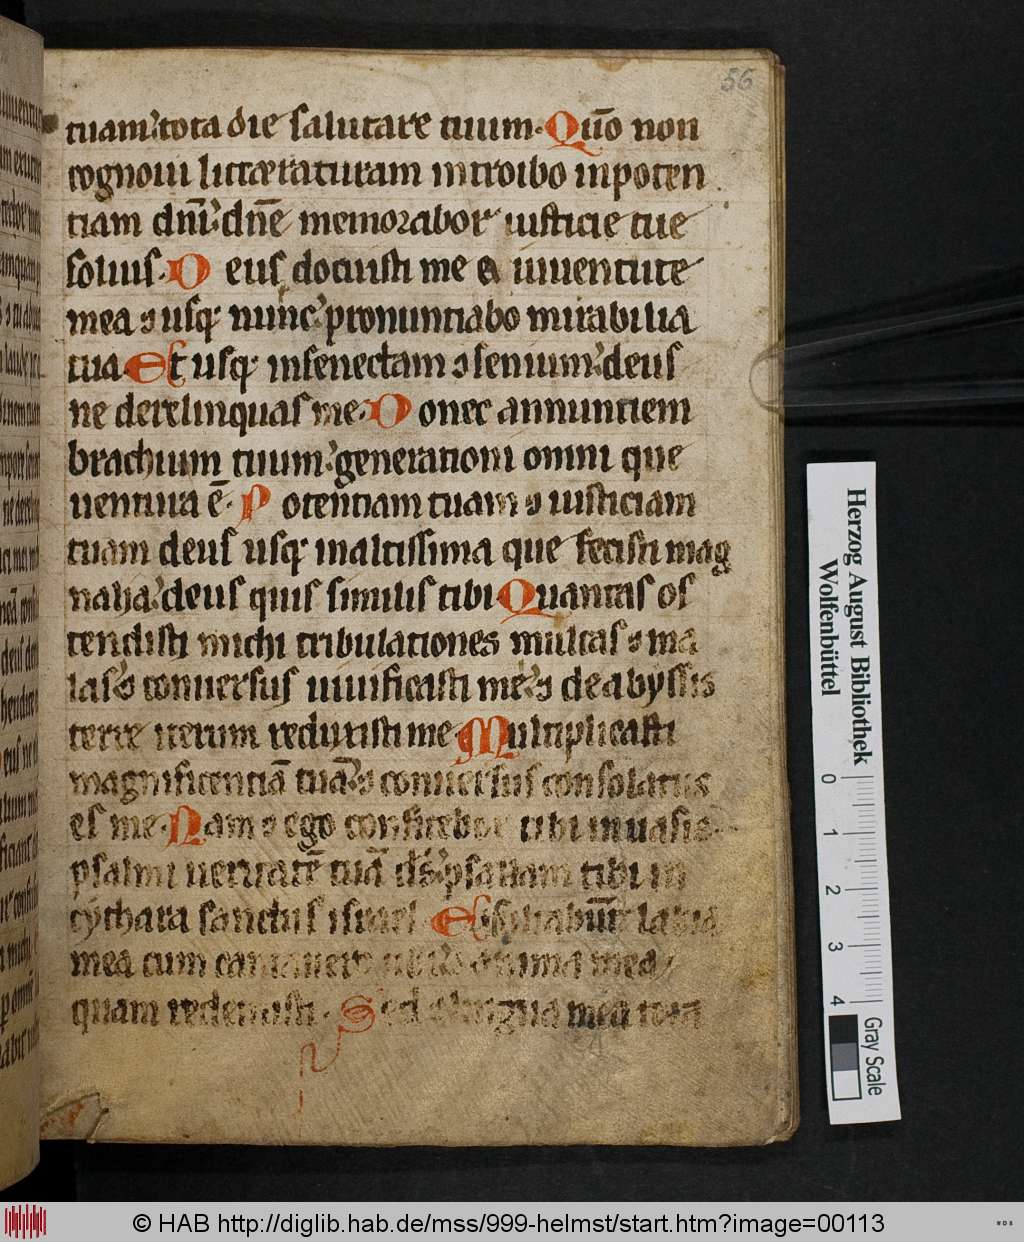 56
tuam. tota die salutare tuum. Quō non
cognoui litteraturam introibo inpoten
tiam dnī. dnē memorabor iusticie tue
solius. Deus docuisti me a iuuentute
mea ⁊ usq; nunc. pronuntiabo mirabilia
tua. Et usq; insenectam ⁊ senium. deus
ne derelinquas me. Donec annuntiem
brachium tuum. generationi omni que
uentura ē. Potentiam tuam ⁊ iusticiam
tuam deus usq; inaltissima que fecisti mag
nalia. deus quis similis tibi. Quantas os
tendisti michi tribulationes multas ⁊ ma
las. ⁊ conuersus uiuificasti me. ⁊ de abyssis
terre iterum reduxisti me. Multiplicasti
magnificentiā tuā. ⁊ conuersus consolatus
es me. Nam ⁊ ego confitebor tibi inuasis
psalmi ueritatē tuā ds. psallam tibi in
cythara sanctus israel. labia
mea cum cantauero tibi. ⁊ anima mea
quam redemisti. Sed ⁊ lingua mea tota
Herzog August Bibliothek
Wolfenbüttel
0 1 2 3 4
Gray Scale
© HAB http://diglib.hab.de/mss/999-helmst/start.htm?image=00113